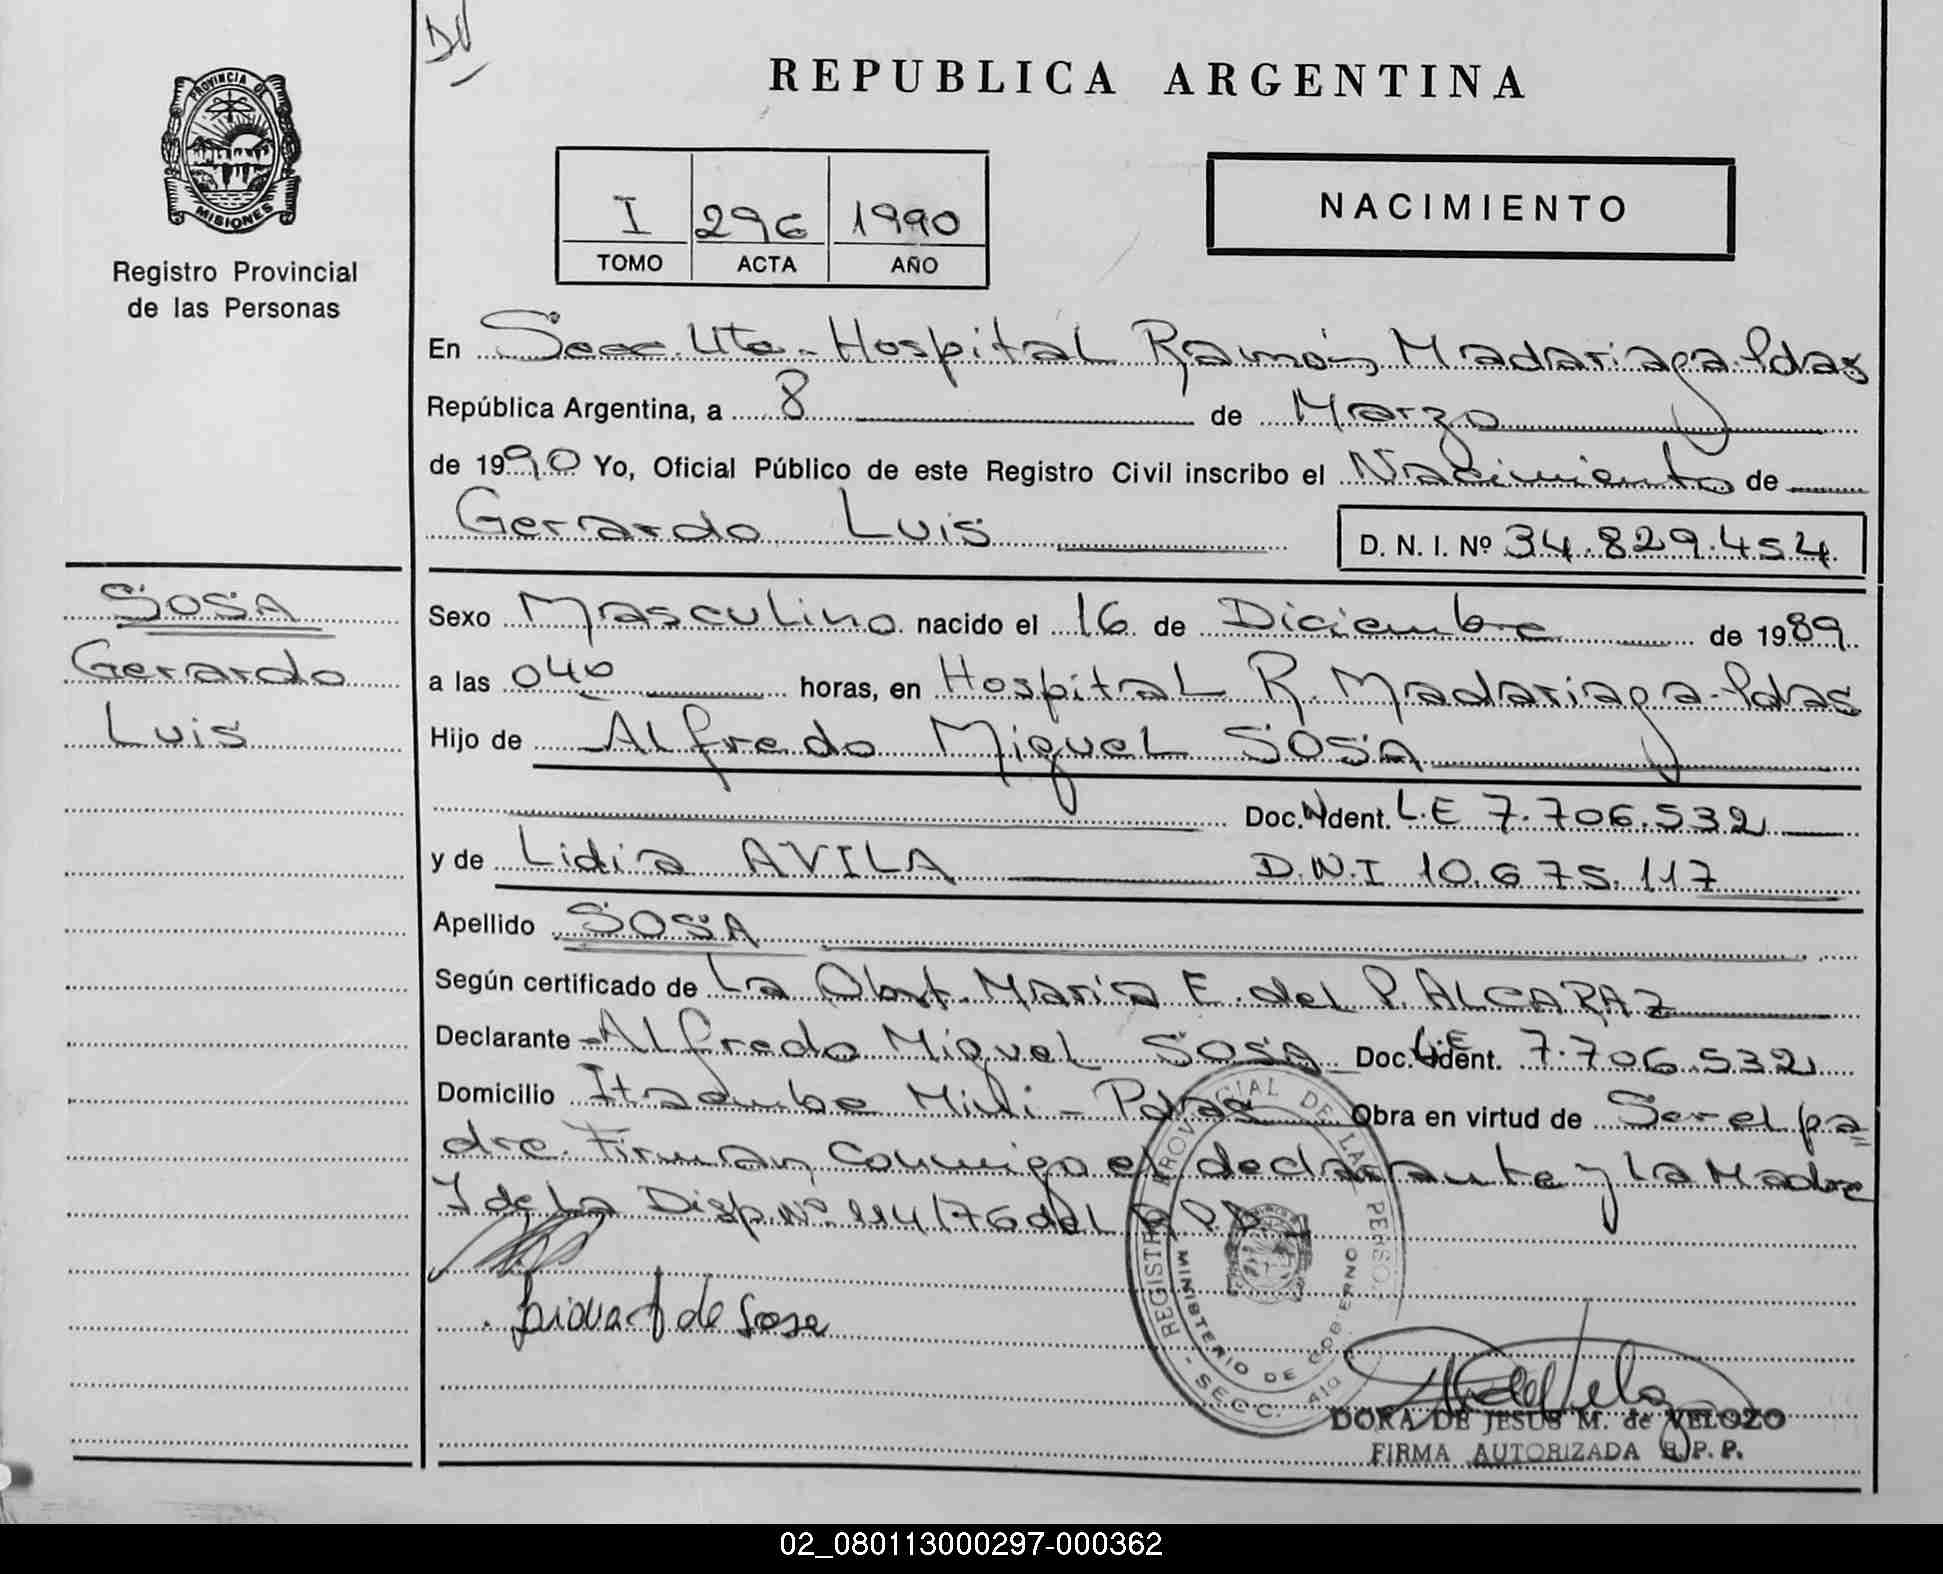 DV
PROVINCIA DE
MISIONES
Registro Provincial
de las Personas
REPUBLICA ARGENTINA
I 296 1990
TOMO ACTA AÑO
NACIMIENTO
En Secc. 4ta. - Hospital Ramón Madariaga - Pdas
República Argentina, a 8 de Marzo
de 1990 Yo, Oficial Público de este Registro Civil inscribo el Nacimiento de
Gerardo Luis D. N. I. Nº 34.829.454
SOSA
Gerardo
Luis
Sexo Masculino nacido el 16 de Diciembre de 1989
a las 040 horas, en Hospital R. Madariaga - Pdas
Hijo de Alfredo Miguel SOSA
Doc. Ident. L.E 7.706.532
y de Lidia AVILA D.N.I 10.675.117
Apellido SOSA
Según certificado de La Obst. María E. del P. ALCARAZ
Declarante Alfredo Miguel SOSA Doc. Ident. L.E 7.706.532
Domicilio Itaembe Mini - Pdas Obra en virtud de Ser el pa
dre. Firman conmigo el declarante y la Madre
Y de la Disp. Nº 114/76 del R.P.P.
de Sosa
REGISTRO PROVINCIAL DE LAS PERSO.
MINISTERIO DE GOBIERNO
- SECC. 4ta
DORA DE JESUS M. de VELOZO
FIRMA AUTORIZADA R. P. P.
02_080113000297-000362